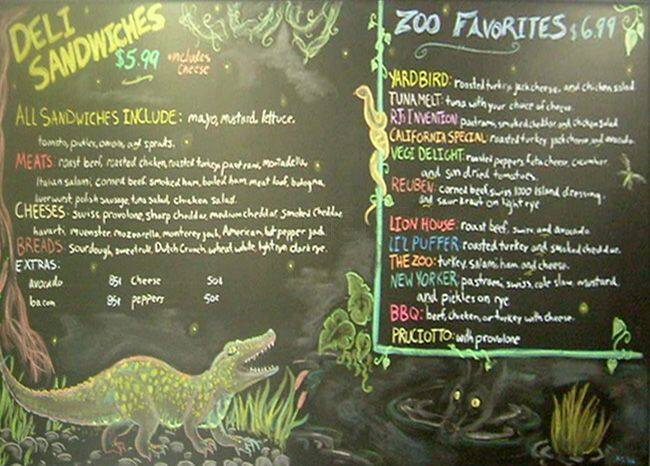 DELI SANDWICHES
$5.99
*includes cheese
ALL SANDWICHES INCLUDE: mayo, mustard, lettuce,
tomato, pickles, onion, and sprouts.
MEATS: roast beef, roasted chicken, roasted turkey, pastrami, mortadella,
Italian salami, corned beef, smoked ham, boiled ham, meat loaf, bologna,
liverwurst, polish sausage, tuna salad, chicken salad.
CHEESES: swiss, provolone, sharp cheddar, medium cheddar, smoked cheddar,
havarti, muenster, mozzarella, monterey jack, American, hot pepper jack.
BREADS: sourdough, sweet roll, Dutch Crunch, wheat, white, light rye, dark rye.
EXTRAS:
avocado 85¢ cheese 50¢
bacon 85¢ peppers 50¢
ZOO FAVORITES $6.99
YARDBIRD: roasted turkey, jack cheese, and chicken salad
TUNA MELT: tuna with your choice of cheese.
RJ's INVENTION: pastrami, smoked cheddar, and chicken salad
CALIFORNIA SPECIAL: roasted turkey, jack cheese, and avocado.
VEGI DELIGHT: roasted peppers, feta cheese, cucumber
and sun dried tomatoes.
REUBEN: corned beef, swiss, 1000 Island dressing
and saur kraut on light rye
LION HOUSE: roast beef, swiss, and avocado.
LI'L PUFFER: roasted turkey and smoked cheddar.
THE ZOO: turkey, salami, ham, and cheese.
NEW YORKER: pastrami, swiss, cole slaw, mustard,
and pickles on rye
BBQ: beef, chicken, or turkey with cheese.
PRUCIOTTO: with provolone